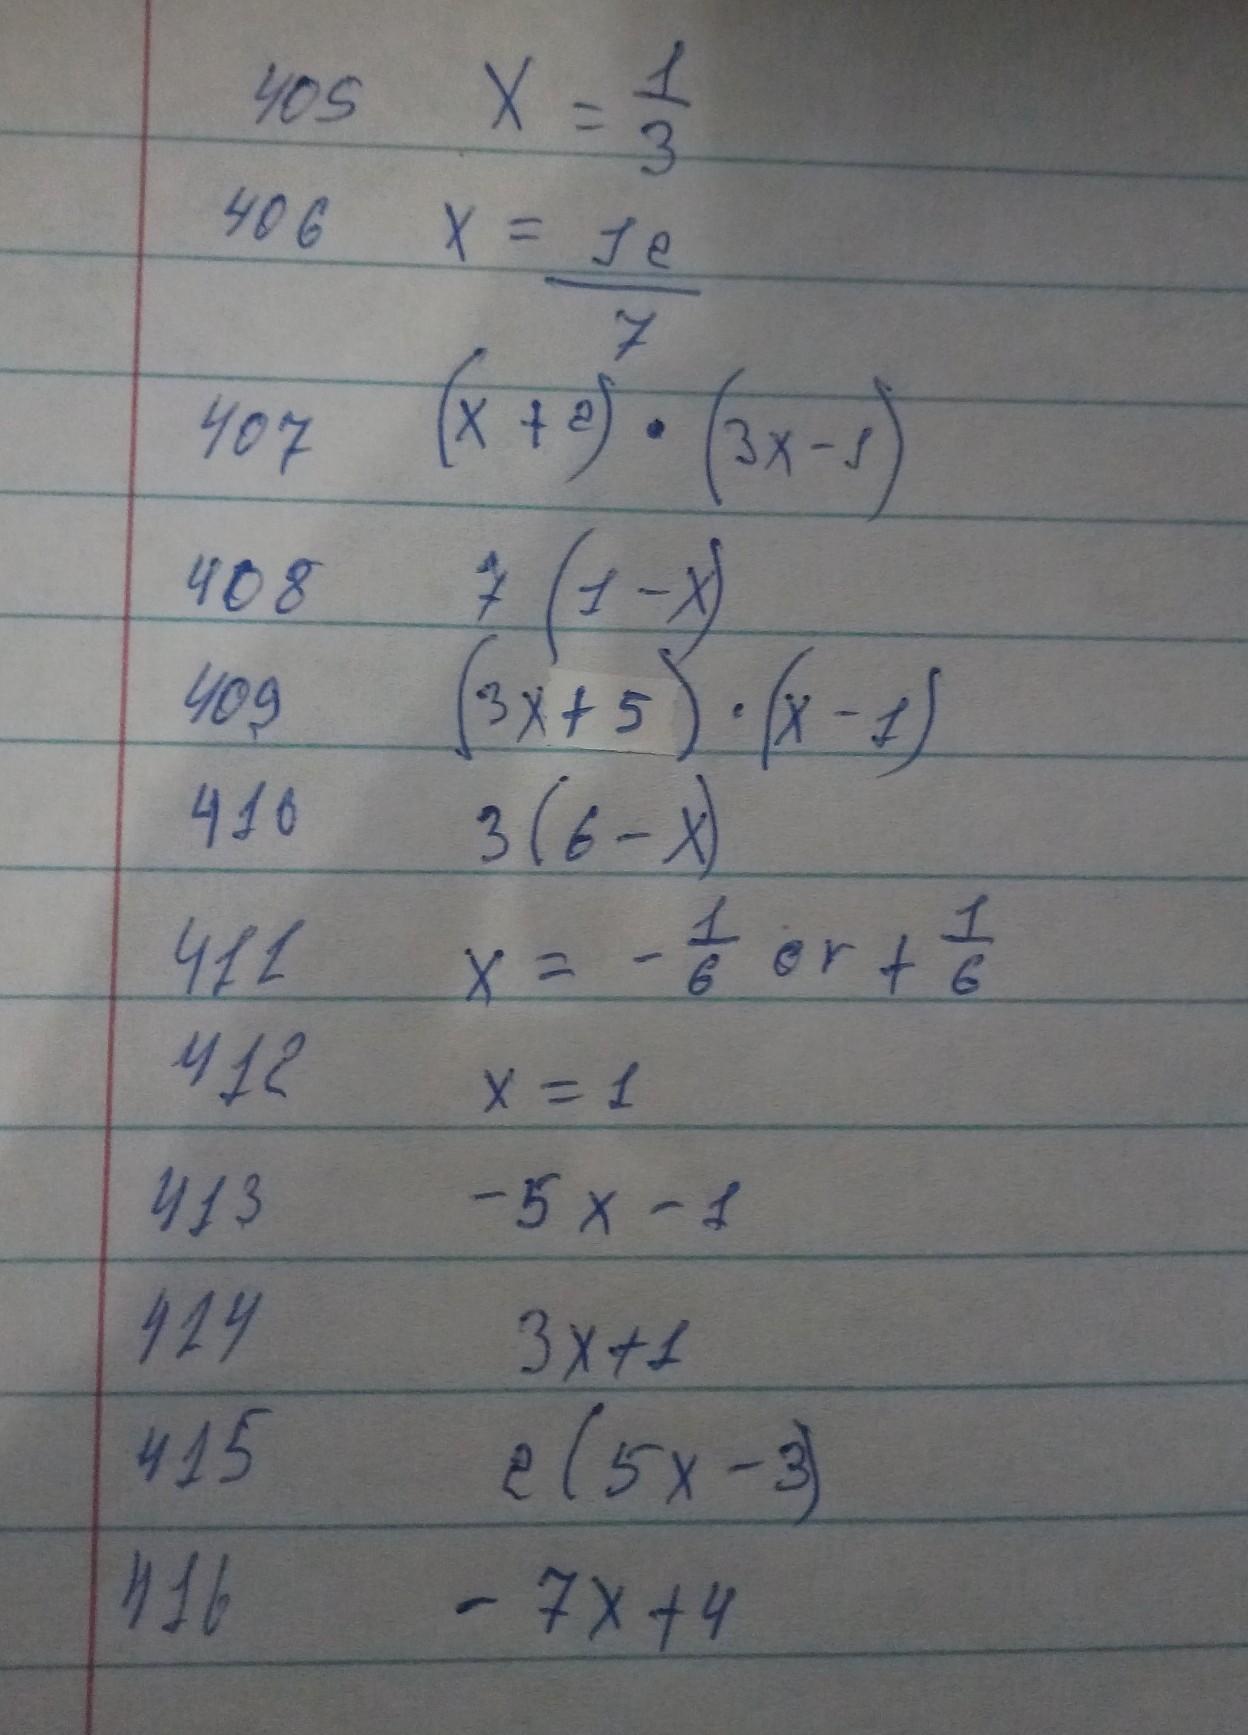 405 x = 1/3
406 x = 12/7
407 (x + 2) · (3x - 1)
408 7 (1 - x)
409 (3x + 5) · (x - 1)
410 3 (6 - x)
411 x = - 1/6 or + 1/6
412 x = 1
413 -5x - 1
414 3x + 1
415 2 (5x - 3)
416 - 7x + 4